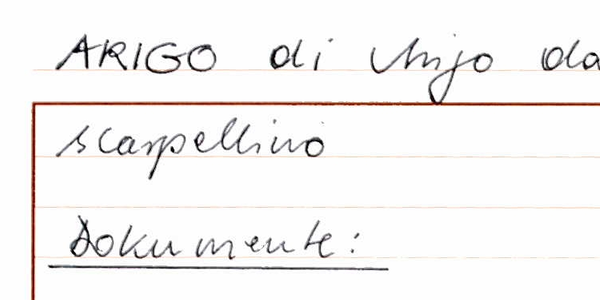 ARIGO di Ghigo da
scarpellino
Dokumente: